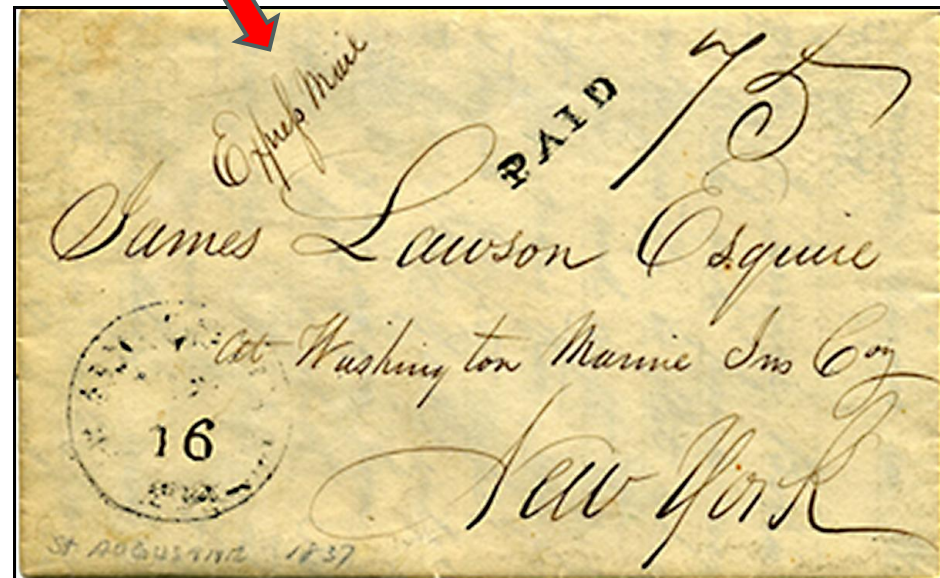 Express Mail
PAID 75
James Lawson Esquire
at Washington Marine Ins Coy
New York
16
St AUGUSTINE 1837